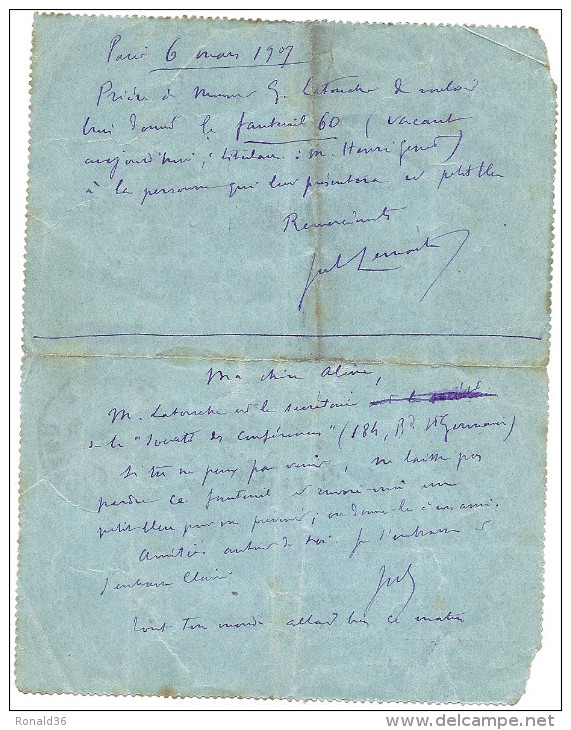 Paris 6 mars 1907
Prière à Monsieur G. Latouche de vouloir
bien donner le fauteuil 60 (vacant
aujourd'hui, titulaire : M. Henri
à la personne qui leur présentera ce petit bleu
Remerciements
Jules Lemaître
Ma chère Aline,
M. Latouche est le secrétaire
de la "Société des Conférences" (184, Bd St Germain)
Si tu ne peux pas venir, ne laisse pas
perdre ce fauteuil et envoie-moi un
petit bleu pour me prévenir; ou donne-le à un ami.
Amitiés autour de toi. Je t'embrasse et
j'embrasse Claire
Jules
tout ton monde allait bien ce matin
Ronald36
www.delcampe.net